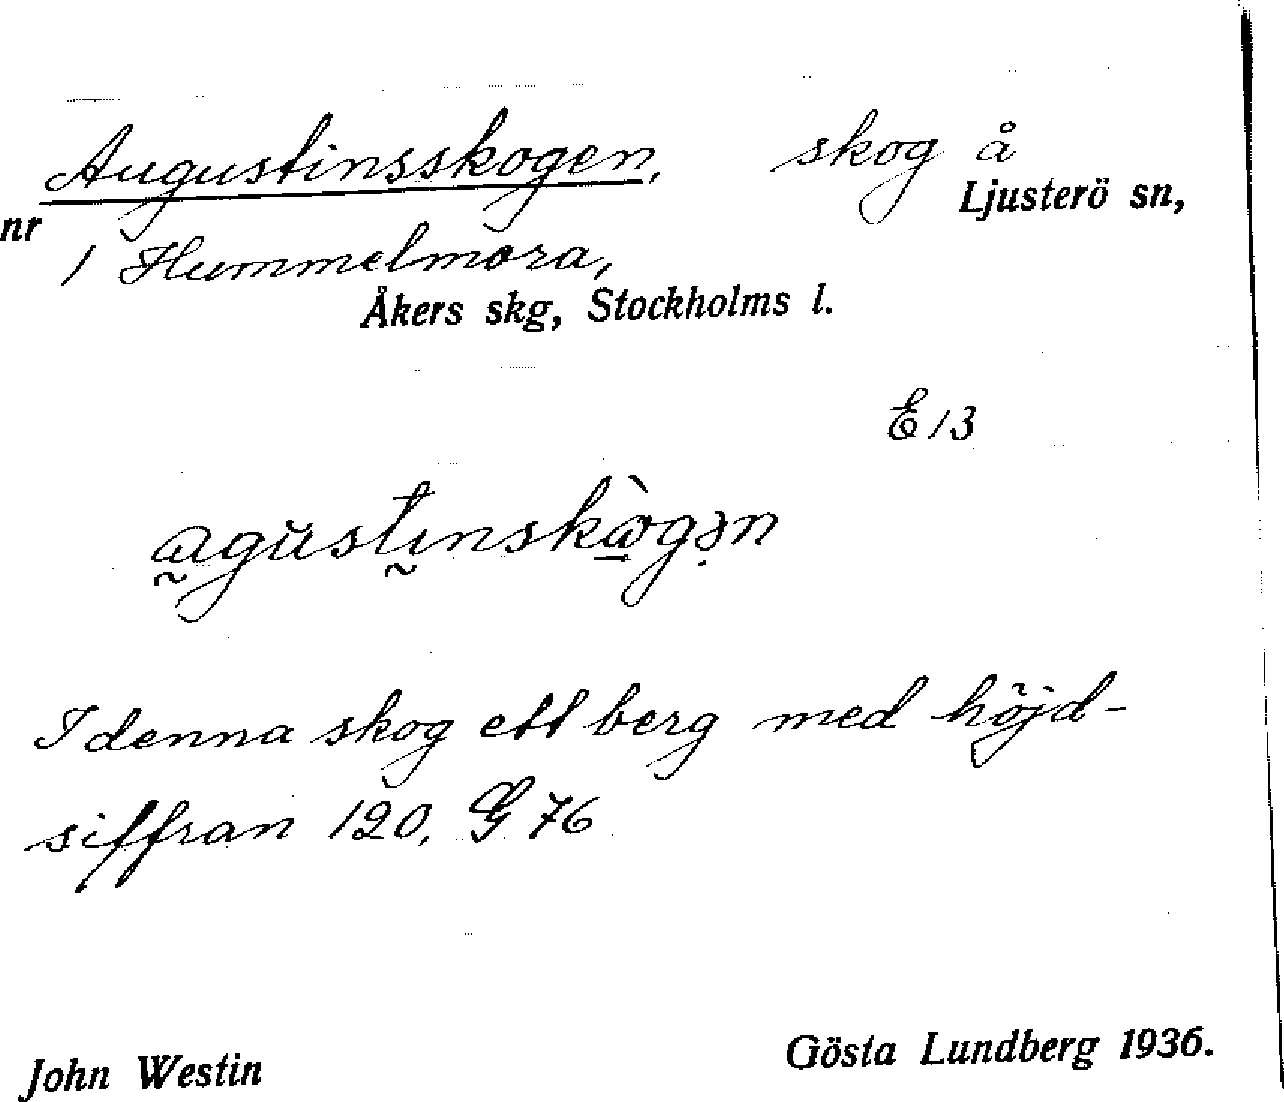 Augustinsskogen, skog å
Ljusterö sn,
nr 1 Hummelmora,
Åkers skg, Stockholms l.
E 13
I denna skog ett berg med höjd-
siffran 120, G 76
John Westin
Gösta Lundberg 1936.